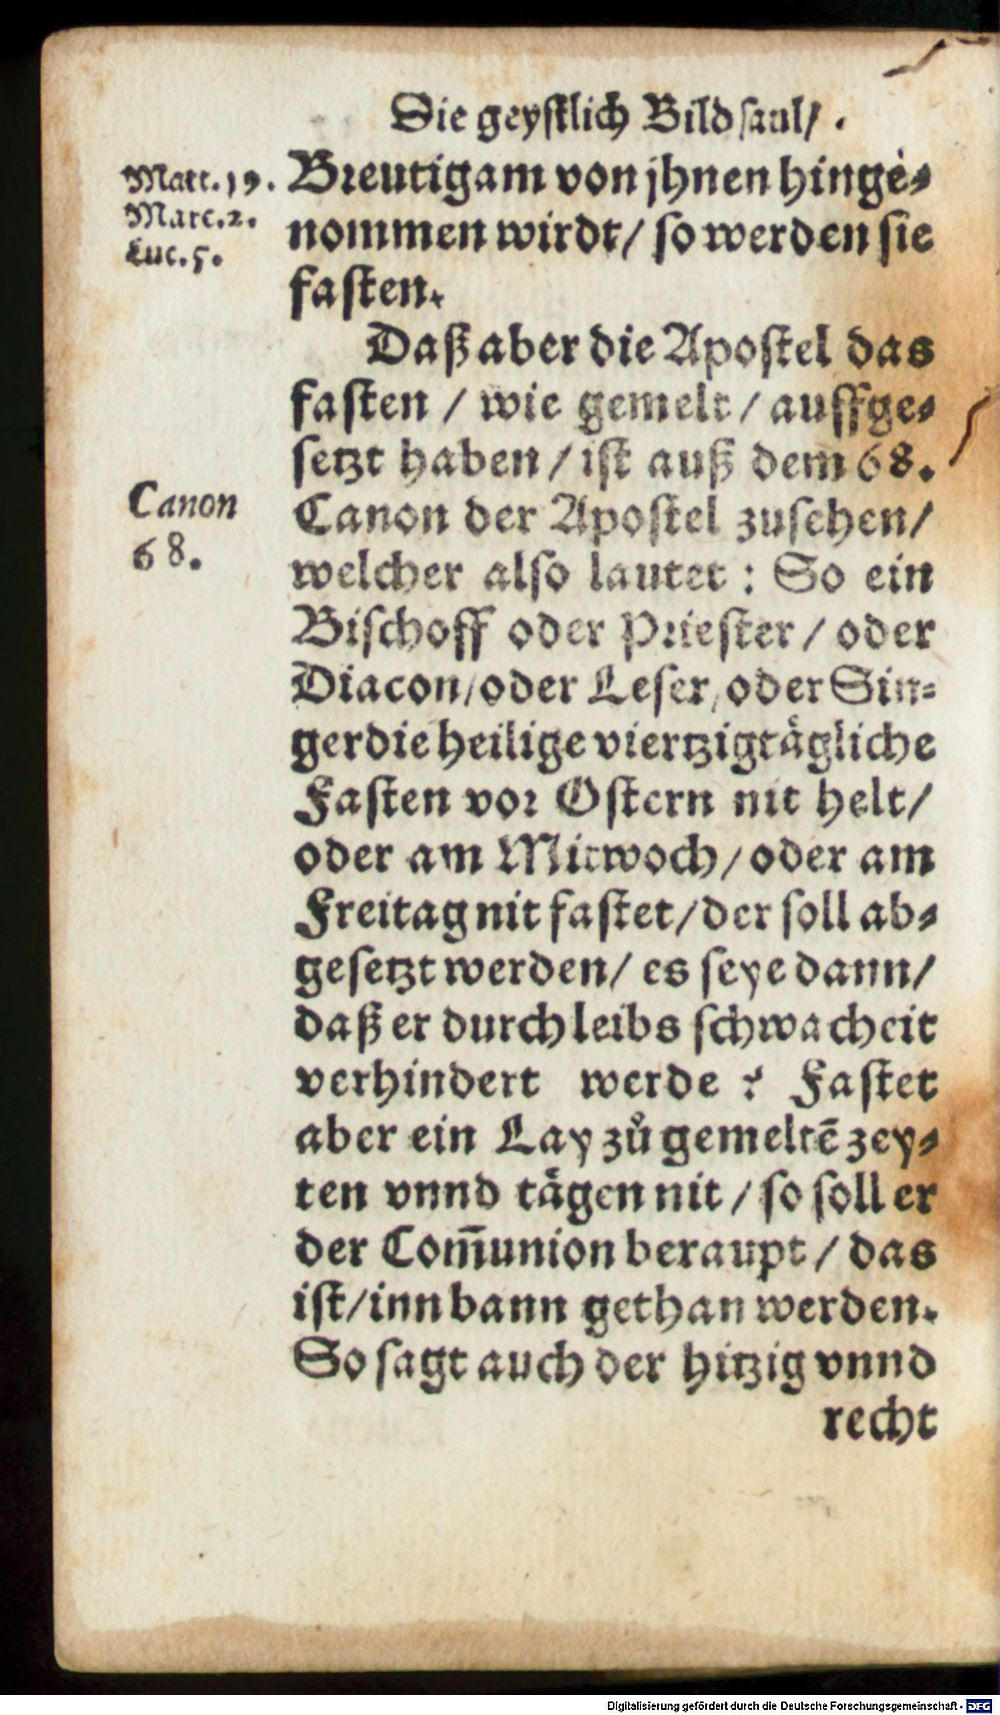 Die geystlich Bildsaul/.
Matt. 19.
Marc. 2.
Luc. 5.
Breutigam von jhnen hinge⸗
nommen wirdt/ so werden sie
fasten.
Daß aber die Apostel das
fasten / wie gemelt / auffge⸗
setzt haben / ist auß dem 68.
Canon
68.
Canon der Apostel zusehen/
welcher also lautet : So ein
Bischoff oder Priester / oder
Diacon/oder Leser/oder Sin⸗
ger die heilige viertzigtägliche
Fasten vor Ostern nit helt/
oder am Mitwoch/oder am
Freitag nit fastet/der soll ab⸗
gesetzt werden/ es seye dann/
daß er durch leibs schwacheit
verhindert werde : Fastet
aber ein Lay zů gemeltē zey⸗
ten vnnd tägen nit / so soll er
der Com̄union beraupt / das
ist/inn bann gethan werden.
So sagt auch der hitzig vnnd
recht
Digitalisierung gefördert durch die Deutsche Forschungsgemeinschaft - DFG